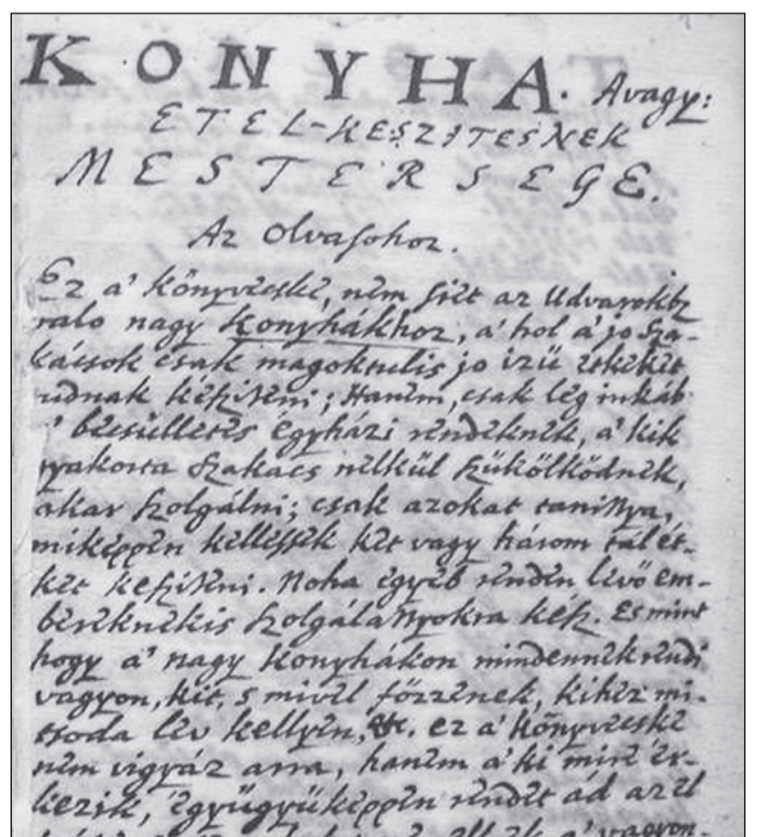 KONYHA. Avagy:
ETEL-KESZITESNEK
MESTERSEGE.
Az Olvasohoz.
Ez a' Könyvecske, nem siet az Udvarokbz
valo nagy Konyhákhoz, a' hol a' jo Sza-
kácsok csak magoktulis jo izü étkeket
tudnak késziteni; Hanem, csak leg inkáb
a' becsülletes Egyházi rendeknek, a' kik
gyakorta Szakács nélkül szükölködnek,
akar szolgálni; csak azokat tanittya,
miképpen kellessék két vagy három tál ét-
ket késziteni. Noha egyéb renden lévö em-
bereknekis szolgálattyokra kész. Es mint
hogy a' nagy Konyhákon mindennek rendi
vagyon, kit, s mivel főzzenek, kihez mi-
tsoda lév kellyen, &c. ez a' Könyvecske
nem vigyáz arra, hanem a' ki mire ér-
kezik, együgyüképpen rendet ád az el
a' vagyon